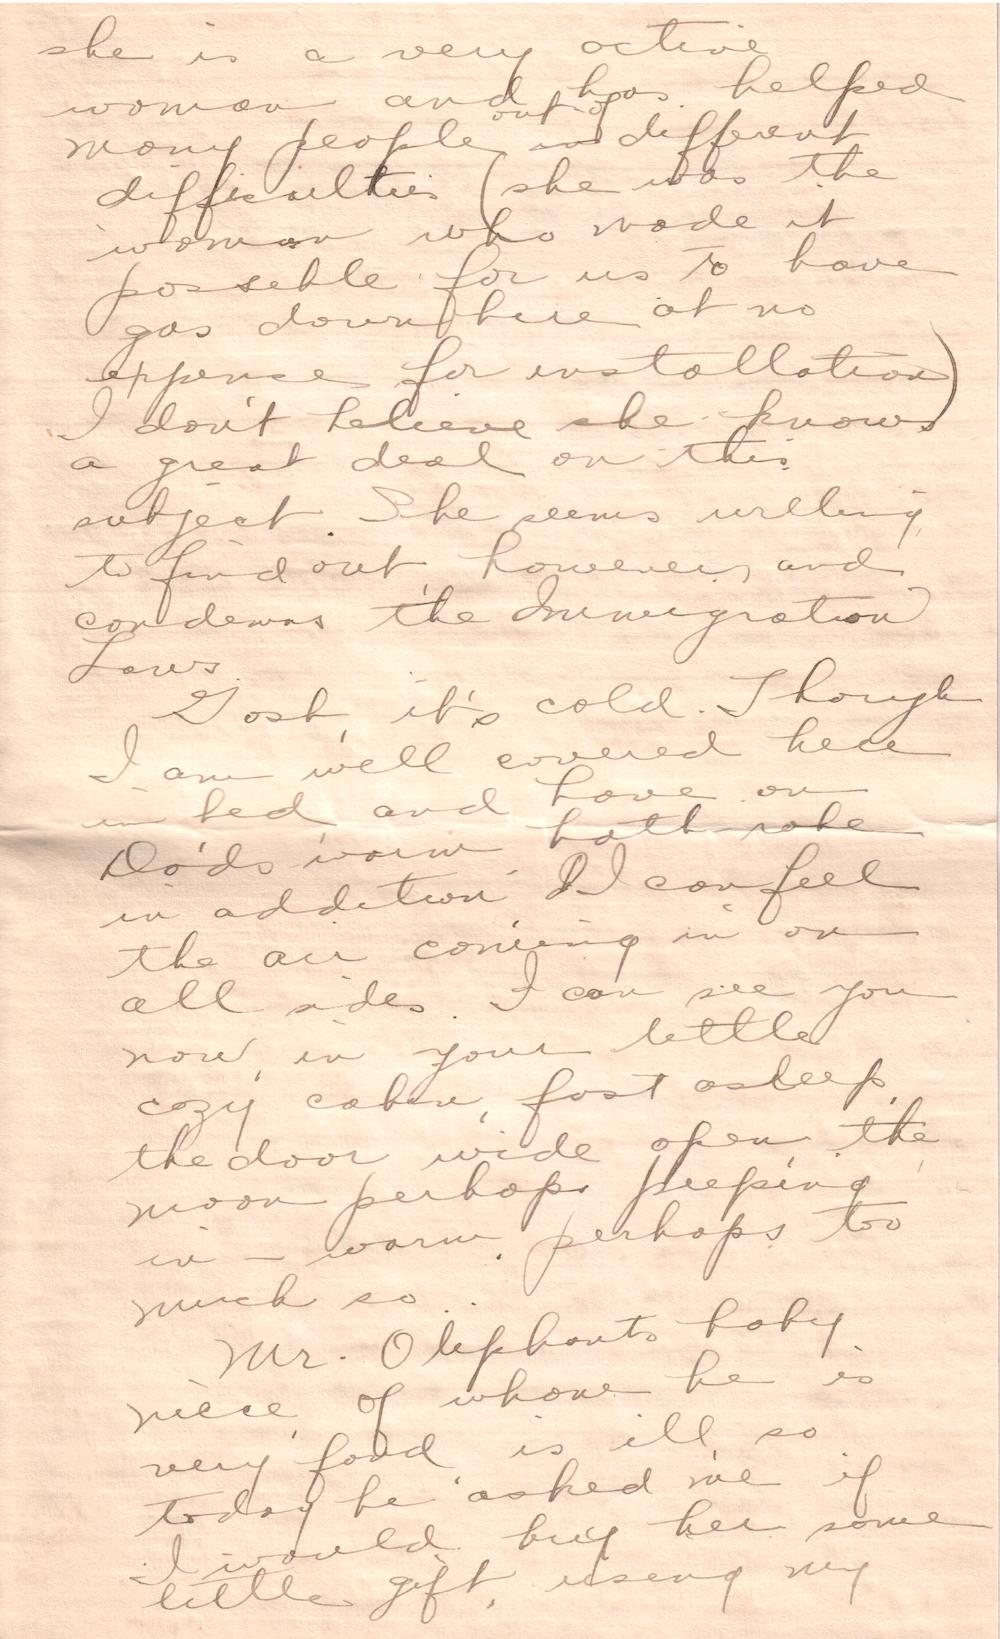 she is a very active
woman and has helped
many people out of in different
difficulties (she was the
woman who made it
posseble for us to have
gas down here at no
expense for installation)
I don't believe she knows
a great deal on this
subject. She seems willing
to find out, however, and
condemns the Immigration
Laws.
Gosh, it's cold. Though
I am well covered here
in bed and have on
Dad's warm bath-robe
in addition I can feel
the air coming in on
all sides. I can see you
now, in your little
cozy cabin, fast asleep,
the door wide open, the
moon perhaps peeping
in - warm, perhaps too
much so..
Mr. Oliphants baby
niece, of whome he is
very fond is ill, so
today he asked me if
I would buy her some
little gift, using my